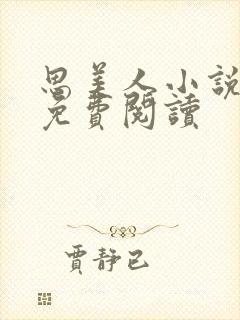 思美人小說
免費閱讀
賈靜已